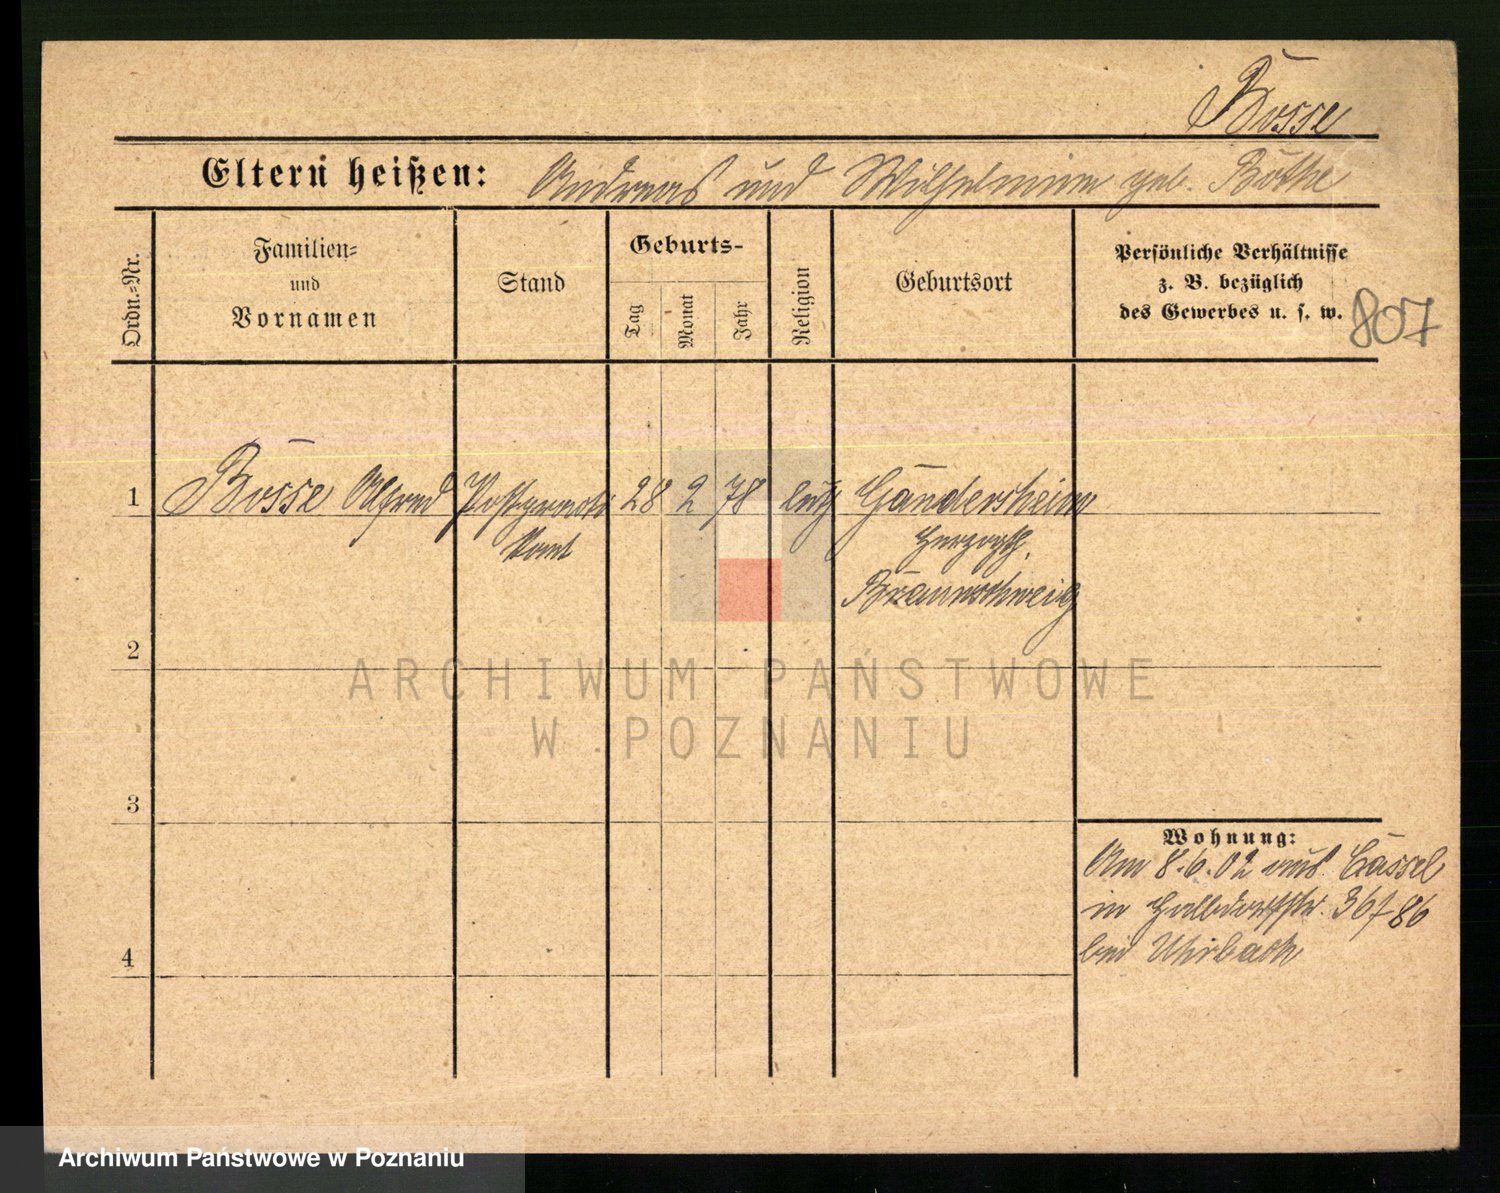 Bosse
Eltern heißen: Andreas und Wilhelmine geb. Bothe
Ordn.-Nr.
Familien-
und
Vornamen
Stand
Geburts-
Tag
Monat
Jahr
Religion
Geburtsort
Persönliche Verhältnisse
z. B. bezüglich
des Gewerbes u. s. w.
807
1 Bosse Alfred 28 2 78 luth Gandersheim
Herzogth.
Braunschweig
2
3
4
Wohnung:
Am 8.6.02 aus Cassel
in Halbdorfstr. 36
bei Uhrbach
ARCHIWUM PAŃSTWOWE
W POZNANIU
Archiwum Państwowe w Poznaniu